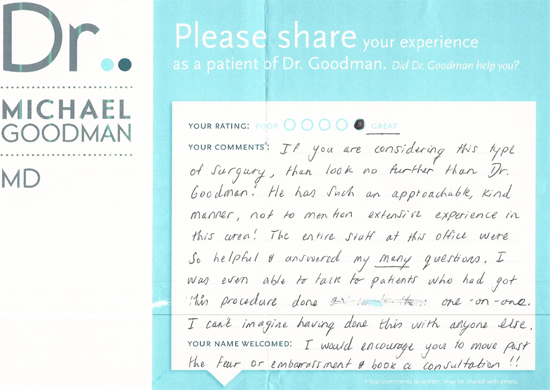 Dr..
MICHAEL
GOODMAN
MD
Please share your experience
as a patient of Dr. Goodman. Did Dr. Goodman help you?
YOUR RATING: POOR GREAT
YOUR COMMENTS*: If you are considering this type
of surgury, then look no further than Dr.
Goodman! He has such an approachable, kind
manner, not to mention extensive experience in
this area! The entire staff at this office were
so helpful & answered my many questions. I
was even able to talk to patients who had got
this procedure done one-on-one.
I can't imagine having done this with anyone else.
YOUR NAME WELCOMED: I would encourage you to move past
the fear or embarrassment & book a consultation!!
*Your comments as written, may be shared with others.